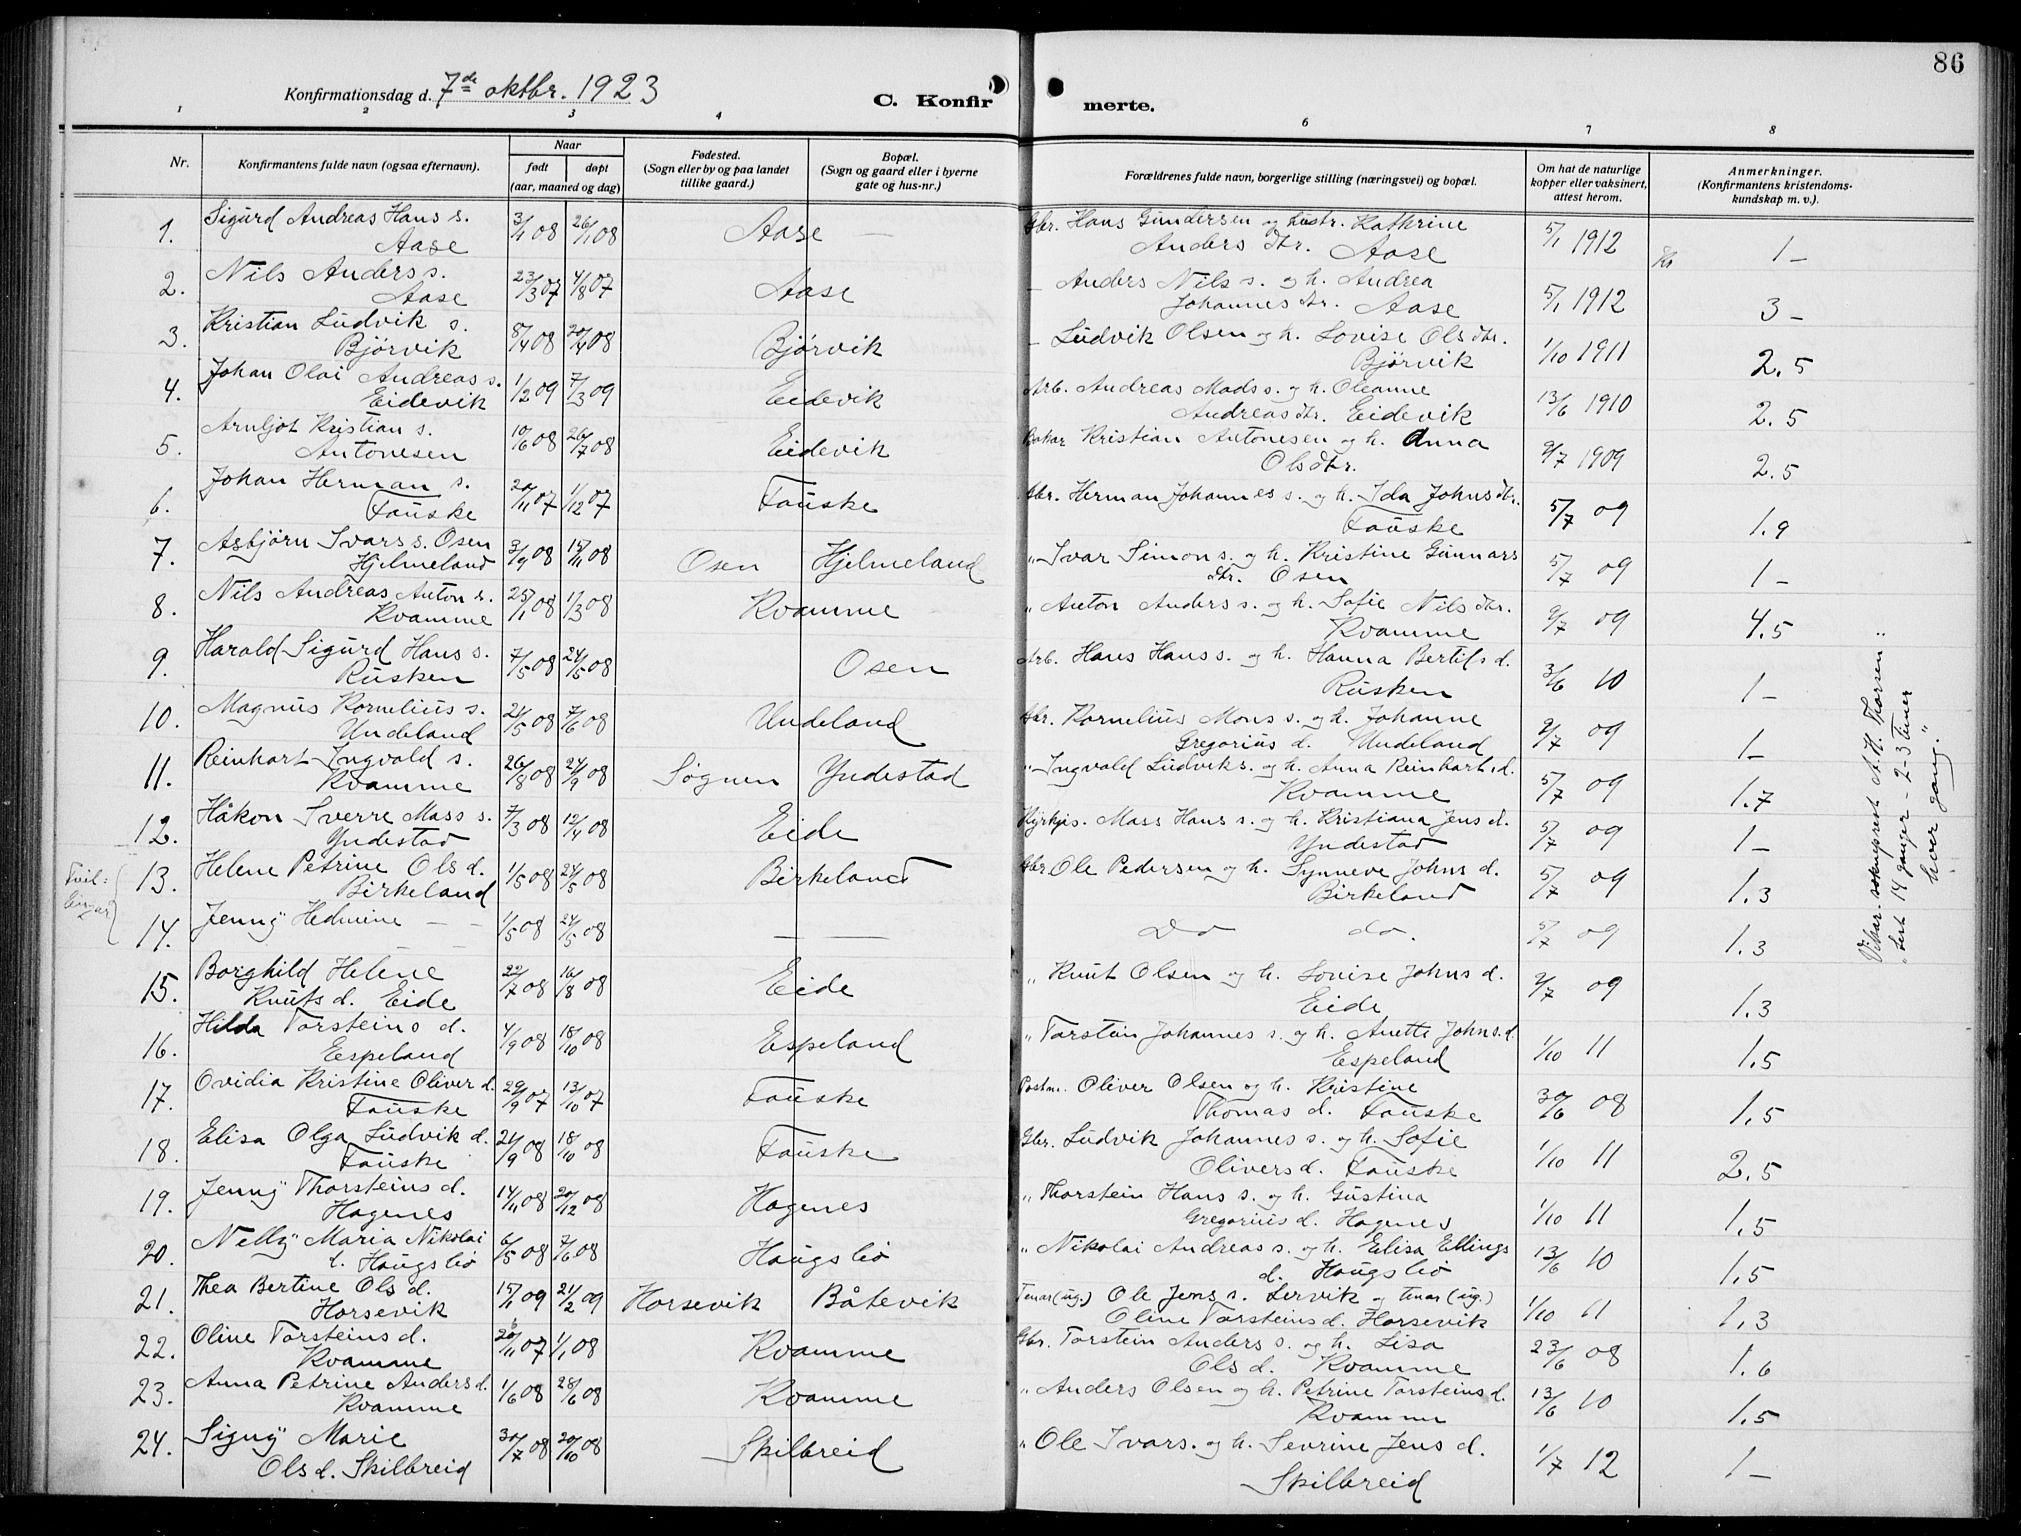 86
Konfirmationsdag d. 7de oktbr. 1923
C. Konfirmerte.
1 2 3 4 6 7 8
Nr.
Konfirmantens fulde navn (ogsaa efternavn).
Naar
født døpt
(aar, maaned og dag)
Fødested.
(Sogn eller by og paa landet
tillike gaard.)
Bopæl.
(Sogn og gaard eller i byerne
gate og hus-nr.)
Forældrenes fulde navn, borgerlige stilling (næringsvei) og bopæl.
Om hat de naturlige
kopper eller vaksinert,
attest herom.
Anmerkninger.
(Konfirmantens kristendoms-
kundskap m. v.).
1. Sigurd Andreas Hans s. 3/1 08 26/1 08 Aase — Gbr. Hans Gundersen og hustr. Kathrine 5/1 1912 1 –
Aase Anders dtr. Aase
2. Nils Anders s. 23/3 07 4/8 07 Aase – Anders Nils s. og h. Andrea 5/1 1912 3 –
Aase Johannes dtr. Aase
3. Kristian Ludvik s. 8/4 08 20/4 08 Bjørvik – Ludvik Olsen og h. Lovise Ols dtr. 1/10 1911 2.5
Bjørvik Bjørvik
4. Johan Olai Andreas s. 1/2 09 7/3 09 Eidevik Arb. Andreas Mads s. og h. Oleanne 13/6 1910 2.5
Eidevik Andreas dtr. Eidevik
5. Arnljot Kristian s. 10/6 08 26/7 08 Eidevik Bakar Kristian Antonesen og h. Anna 9/7 1909 2.5
Antonesen Olsdtr.
6. Johan Herman s. 20/11 07 1/12 07 Fauske Gbr. Herman Johannes s. og h. Ida Johns dtr. 5/7 09 1.9
Fauske Fauske
7. Asbjørn Ivars s. Osen 3/9 08 15/11 08 Osen Hjelmeland „ Ivar Simon s. og h. Kristine Gunnars 5/7 09 1 –
Hjelmeland dtr. Osen
8. Nils Andreas Anton s. 25/1 08 1/3 08 Kvamme „ Anton Anders s. og h. Sofie Nils dtr. 9/7 09 4.5
Kvamme Kvamme
9. Harald Sigurd Hans s. 7/5 08 24/5 08 Osen Arb. Hans Hans s. og h. Hanna Bertils d. 3/6 10 1 –
Rusken Rusken
10. Magnus Kornelius s. 21/5 08 7/6 08 Undeland Gbr. Kornelius Mons s. og h. Johanne 9/7 09 1 –
Undeland Gregorius d. Undeland
11. Reinhart Ingvald s. 26/8 08 24/9 08 Sognen Yndestad „ Ingvald Ludvik s. og h. Anna Reinharts d. 5/7 09 1.7
Kvamme Kvamme
12. Håkon Sverre Mass s. 7/3 08 12/4 08 Eide Kyrkjs. Mass Hans s. og h. Kristiana Jens d. 5/7 09 1 –
Yndestad Yndestad
Tvil-
lingar
13. Helene Petrine Ols d. 1/5 08 24/5 08 Birkeland Gbr. Ole Pedersen og h. Synneve Johns d. 5/7 09 1.3
Birkeland Birkeland
14. Jenny Hedmine – – 1/5 08 24/5 08 — — Do do. 5/7 09 1.3
15. Borghild Helene 22/7 08 16/8 08 Eide „ Knut Olsen og h. Lovise Johns d. 9/7 09 1.3
Knuts d. Eide Eide
16. Hilda Torsteins d. 4/9 08 18/10 08 Espeland „ Torstein Johannes s. og h. Anette Johns d. 1/10 11 1.5
Espeland Espeland
17. Ovidia Kristine Oliver d. 29/9 07 13/10 07 Fauske Postm. Oliver Olsen og h. Kristine 30/6 08 1.5
Fauske Thomas d. Fauske
18. Elisa Olga Ludvik d. 21/9 08 18/10 08 Fauske Gbr. Ludvik Johannes s. og h. Sofie 1/10 11 2.5
Fauske Olivers d. Fauske
19. Jenny Thorsteins d. 14/11 08 20/12 08 Hagenes „ Thorstein Hans s. og h. Gustina 1/10 11 1.5
Hagenes Gregorius d. Hagenes
20. Nelly Maria Nikolai 6/5 08 7/6 08 Haugsbø „ Nikolai Andreas s. og h. Elisa Ellings 13/6 10 1.5
d. Haugsbø d. Haugsbø
21. Thea Bertine Ols d. 15/1 09 21/2 09 Horsevik Båtevik Tenar (ug.) Ole Jens s. Lervik og tenar (ug.) 1/10 11 1.3
Horsevik Oline Torsteins d. Horsevik
22. Oline Torsteins d. 26/11 07 1/1 08 Kvamme Gbr. Torstein Anders s. og h. Lisa 23/6 08 1.6
Kvamme Ols d. Kvamme
23. Anna Petrine Anders d. 1/6 08 28/6 08 Kvamme „ Anders Olsen og h. Petrine Torsteins d. 13/6 10 1.5
Kvamme Kvamme
24. Signy Marie 30/7 08 20/10 08 Skilbreid „ Ole Ivars. og h. Sevrine Jens d. 1/7 12 1 –
Ols d. Skilbreid Skilbreid
Vikar. sokneprest A. K. Thorsen „
„ lest 14 ganger – 2-3 timer
hver gang."